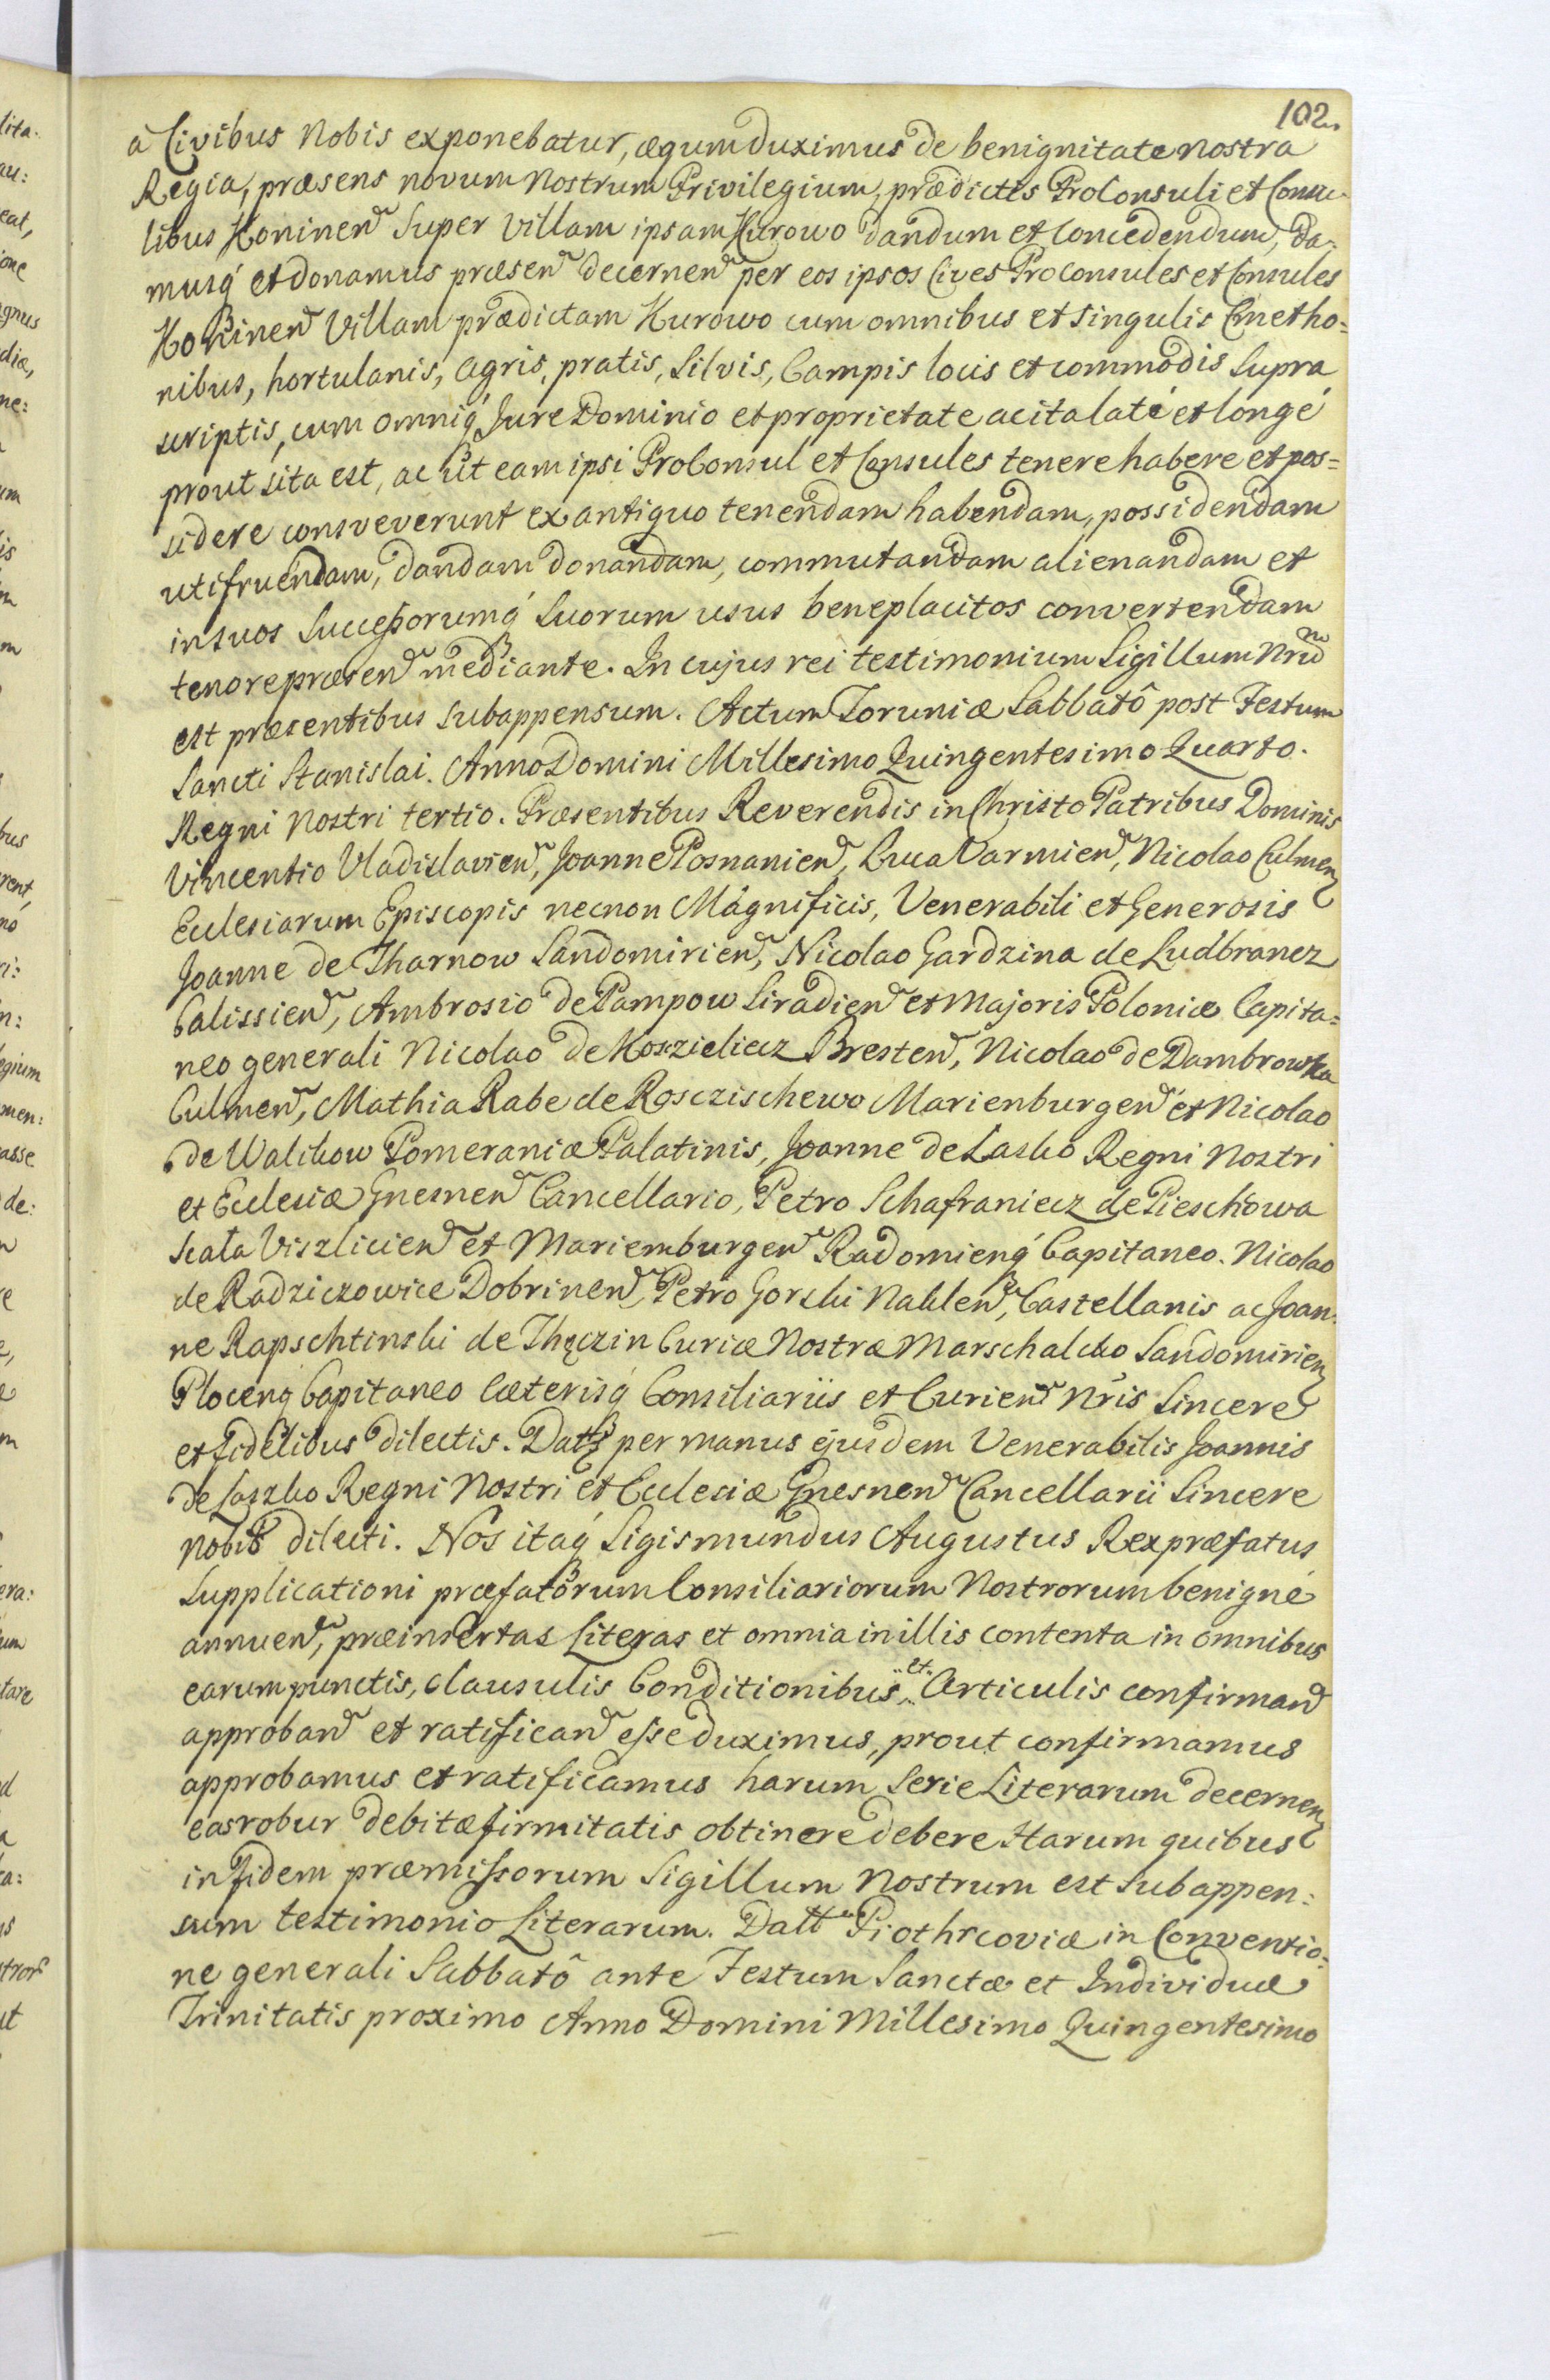 102.
à Civibus Nobis exponebatur, æqum duximus de benignitate nostra
Regia, præsens novum nostrum Privilegium, prædictis ProConsuli et Consu-
libus Koninen Super Villam ipsam Kurowo dandum et Concedendum, da-
musq́ et donamus præsen decernen per eos ipsos Cives ProConsules et Consules
Koninen Villam prædictam Kurowo cum omnibus et singulis Cmetho=
nibus, hortulanis, agris, pratis, Silvis, Campis locis et commodis Supra
scriptis, cum omniq́ Jure Dominio et proprietate ac ita laté et longé
prout sita est, ac ut eam ipsi ProConsul et Consules tenere habere et pos=
sidere consveverunt ex antiquo tenendam habendam, possidendam
utifruendam, dandam donandam, commutandam alienandam et
in suos Successorumq́ Suorum usus beneplacitos convertendam
tenore præsen mediante. In cujus rei testimonium Sigillum Nrum
est præsentibus subappensum. Actum Toruniæ Sabbatô post Festum
Sancti Stanislai. Anno Domini Millesimo Quingentesimo Quarto.
Regni Nostri tertio. Præsentibus Reverendis in Christo Patribus Dominis
Vincentio Vladislavien, Joanne Posnanien, Luca Varmien, Nicolao Culmen
Ecclesiarum Episcopis necnon Magnificis, Venerabili et Generosis
Joanne de Tharnow Sandomirien, Nicolao Gardzina de Ludbrancz
Calissien, Ambrosio de Pampow Siradien et Majoris Poloniæ Capita=
neo generali Nicolao de Koszieliecz Bresten, Nicolao de Dambrowka
Culmen, Mathia Rabe de Rosczischewo Marienburgen et Nicolao
de Walikow Pomeraniæ Palatinis, Joanne de Lasko Regni Nostri
et Ecclesiæ Gnesnen Cancellario, Petro Schafraniecz de Pieschowa
scala Viszlicien et Mariemburgen Radomienq́ Capitaneo. Nicolao
de Radziczowice Dobrinen, Petro Gorski Naklen, Castellanis ac Joan-
ne Rapschtinski de Thęczin Curiæ Nostræ Marschalcko Sandomirien
Plocenq́ Capitaneo Cæterisq́ Consiliariis et Curien Nris Sincere
et Fidelibus dilectis. Datt per manus ejusdem Venerabilis Joannis
de Laszko Regni Nostri et Ecclesiæ Gnesnen Cancellarii Sincere
nobis dilecti. Nos itaq́ Sigismundus Augustus Rex præfatus
Supplicationi præfatorum Consiliariorum Nostrorum benigné
annuen, præinsertas Literas et omnia in illis contenta in omnibus
earum punctis, clausulis Conditionibus, et Articulis confirman
approban et ratifican esse duximus, prout confirmamus
approbamus et ratificamus harum Serie Literarum decernen
eas robur debitæ firmitatis obtinere debere Harum quibus
in fidem præmissorum Sigillum Nostrum est Subappen:
sum testimonio Literarum. Datt Piothrcoviæ in Conventio:
ne generali Sabbatô ante Festum Sanctæ et Individuæ
Trinitatis proximo Anno Domini Millesimo Quingentesimo